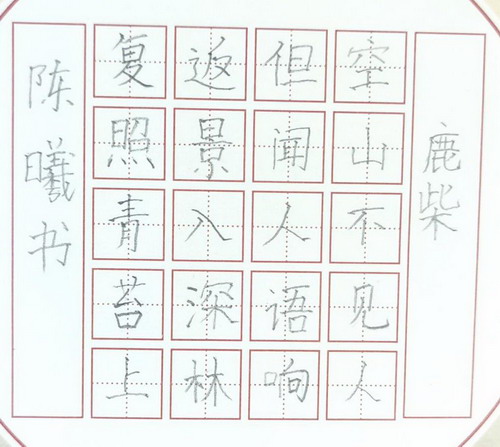 鹿柴
空山不见人
但闻人语响
返景入深林
复照青苔上
陈曦书